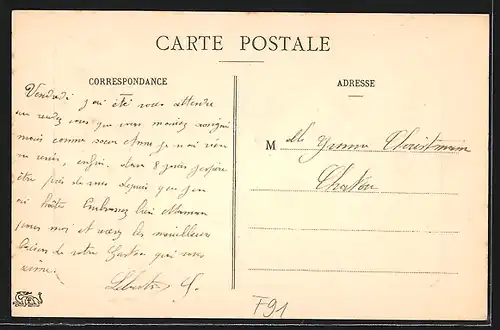 CARTE POSTALE
CORRESPONDANCE
ADRESSE
Vendredi j'ai été vous attendre
au rendez vous que vous m'aviez assigné
mais comme sœur Anne je n'ai rien
vu venir, enfin dans 8 jours j'espère
être près de vous depuis que j'en
ai hâte Embrassez bien Maman
pour moi et recevez les meilleurs
baisers de votre Gaston qui vous
aime.
M
elle Yvonne
Chatou
F91